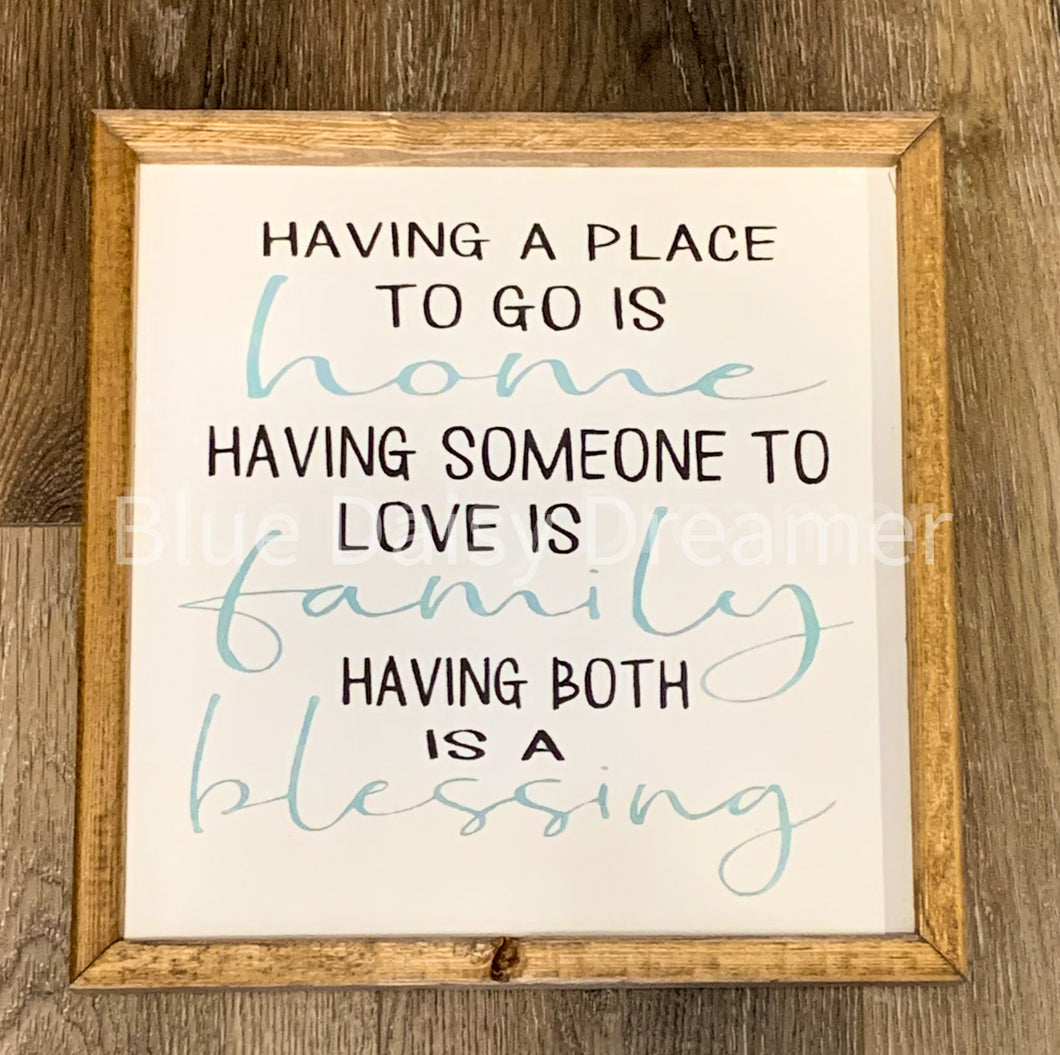 HAVING A PLACE
TO GO IS
home
HAVING SOMEONE TO
LOVE IS
Blue Daisy Dreamer
family
HAVING BOTH
IS A
blessing